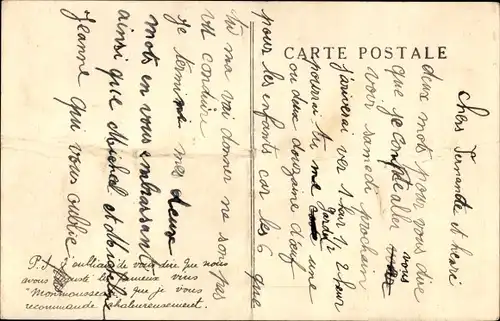 CARTE POSTALE
Chers Fernande et henri
deux mots pour vous dire
que je compte aller vous
voir samedi prochain
j'ariverai ver 1 heur 1/2 2 heur
pourrai tu me garder une
ou deux douzaine d'œuf
pour les enfants car les 6 que
tu ma vai donner ne son pas
vit conduire
Je termine mes deux
mots en vous embrasant
ainsi que Michel et
Jeanne qui vous oublie
P.S. J'oubliais de vous dire que nous
avons les fameux vins
"Monmousseau" que je vous
recommande chaleureusement.